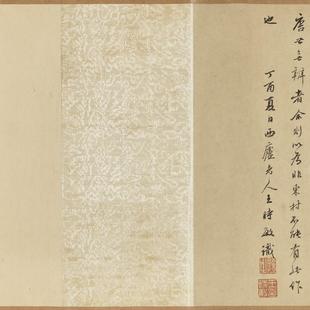 唐辨者余則以為非東村不能有此作
也
丁酉夏日西廬老人王時敏識